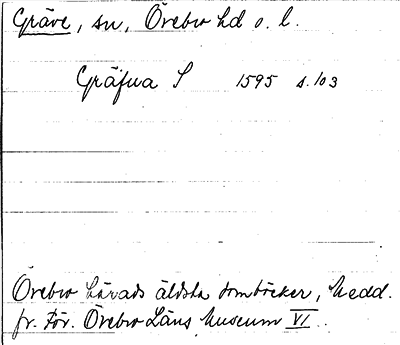 Gräve, sn, Örebro hd o. l.
Gräfua S 1595 s. 103
Örebro härads äldsta domböcker, Medd.
fr. För. Örebro Läns Museum VI.